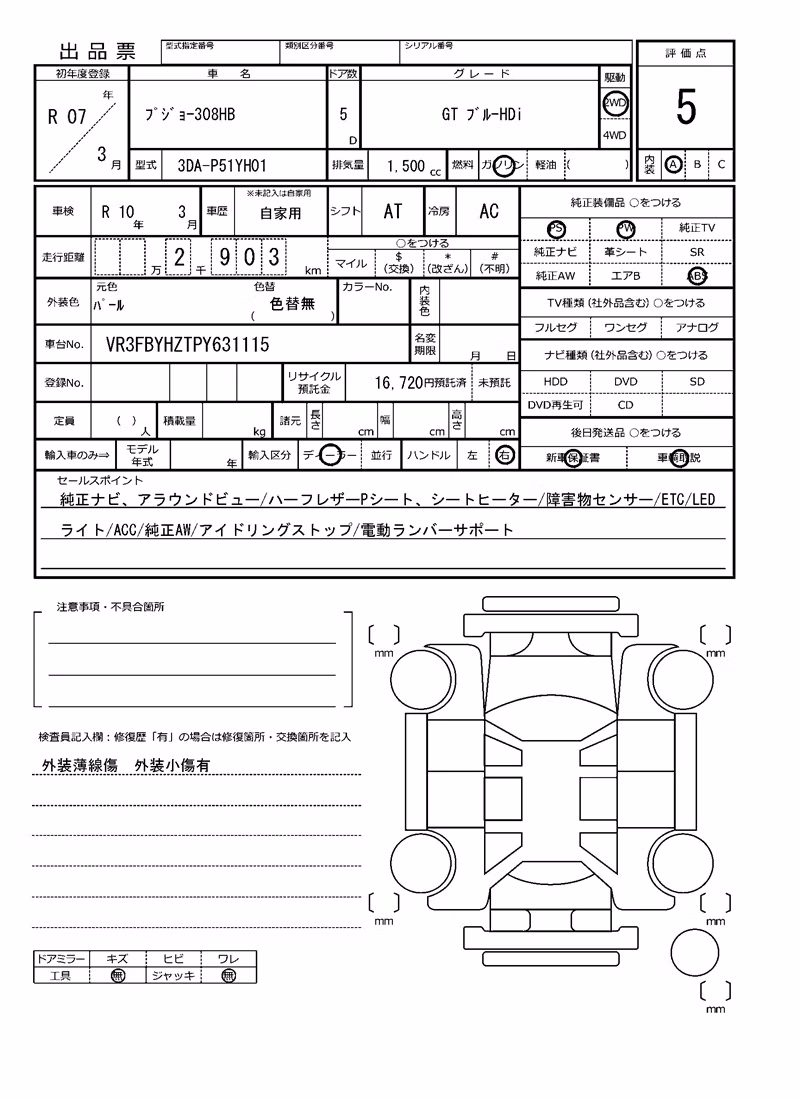 出品票 型式指定番号 類別区分番号 シリアル番号 評価点
初年度登録 車名 ドア数 グレード 駆動
R 07 年 3 月 プジョー308HB 5 D GT ブルーHDi 2WD 4WD 5
型式 3DA-P51YH01 排気量 1,500 cc 燃料 ガソリン 軽油 ( ) 内装 A B C
※未記入は自家用 純正装備品 ○をつける
車検 R 10 年 3 月 車歴 自家用 シフト AT 冷房 AC
PS PW 純正TV
走行距離 万 2 千 9 0 3 km ○をつける
マイル $(交換) *(改ざん) #(不明)
純正ナビ 革シート SR
純正AW エアB ABS
外装色 元色 パール 色替 ( 色替無 ) カラーNo. 内装色
TV種類(社外品含む) ○をつける
フルセグ ワンセグ アナログ
車台No. VR3FBYHZTPY631115 名変期限 月 日
ナビ種類(社外品含む) ○をつける
登録No. リサイクル預託金 16,720円預託済 未預託
HDD DVD SD
DVD再生可 CD
定員 ( ) 人 積載量 kg 諸元 長さ cm 幅 cm 高さ cm
後日発送品 ○をつける
輸入車のみ⇒ モデル年式 年 輸入区分 ディーラー 並行 ハンドル 左 右
新車保証書 車輌取説
セールスポイント
純正ナビ、アラウンドビュー/ハーフレザーPシート、シートヒーター/障害物センサー/ETC/LED
ライト/ACC/純正AW/アイドリングストップ/電動ランバーサポート
注意事項・不具合箇所
mm mm
検査員記入欄:修復歴「有」の場合は修復箇所・交換箇所を記入
外装薄線傷 外装小傷有
mm mm
ドアミラー キズ ヒビ ワレ
工具 無 ジャッキ 無
mm